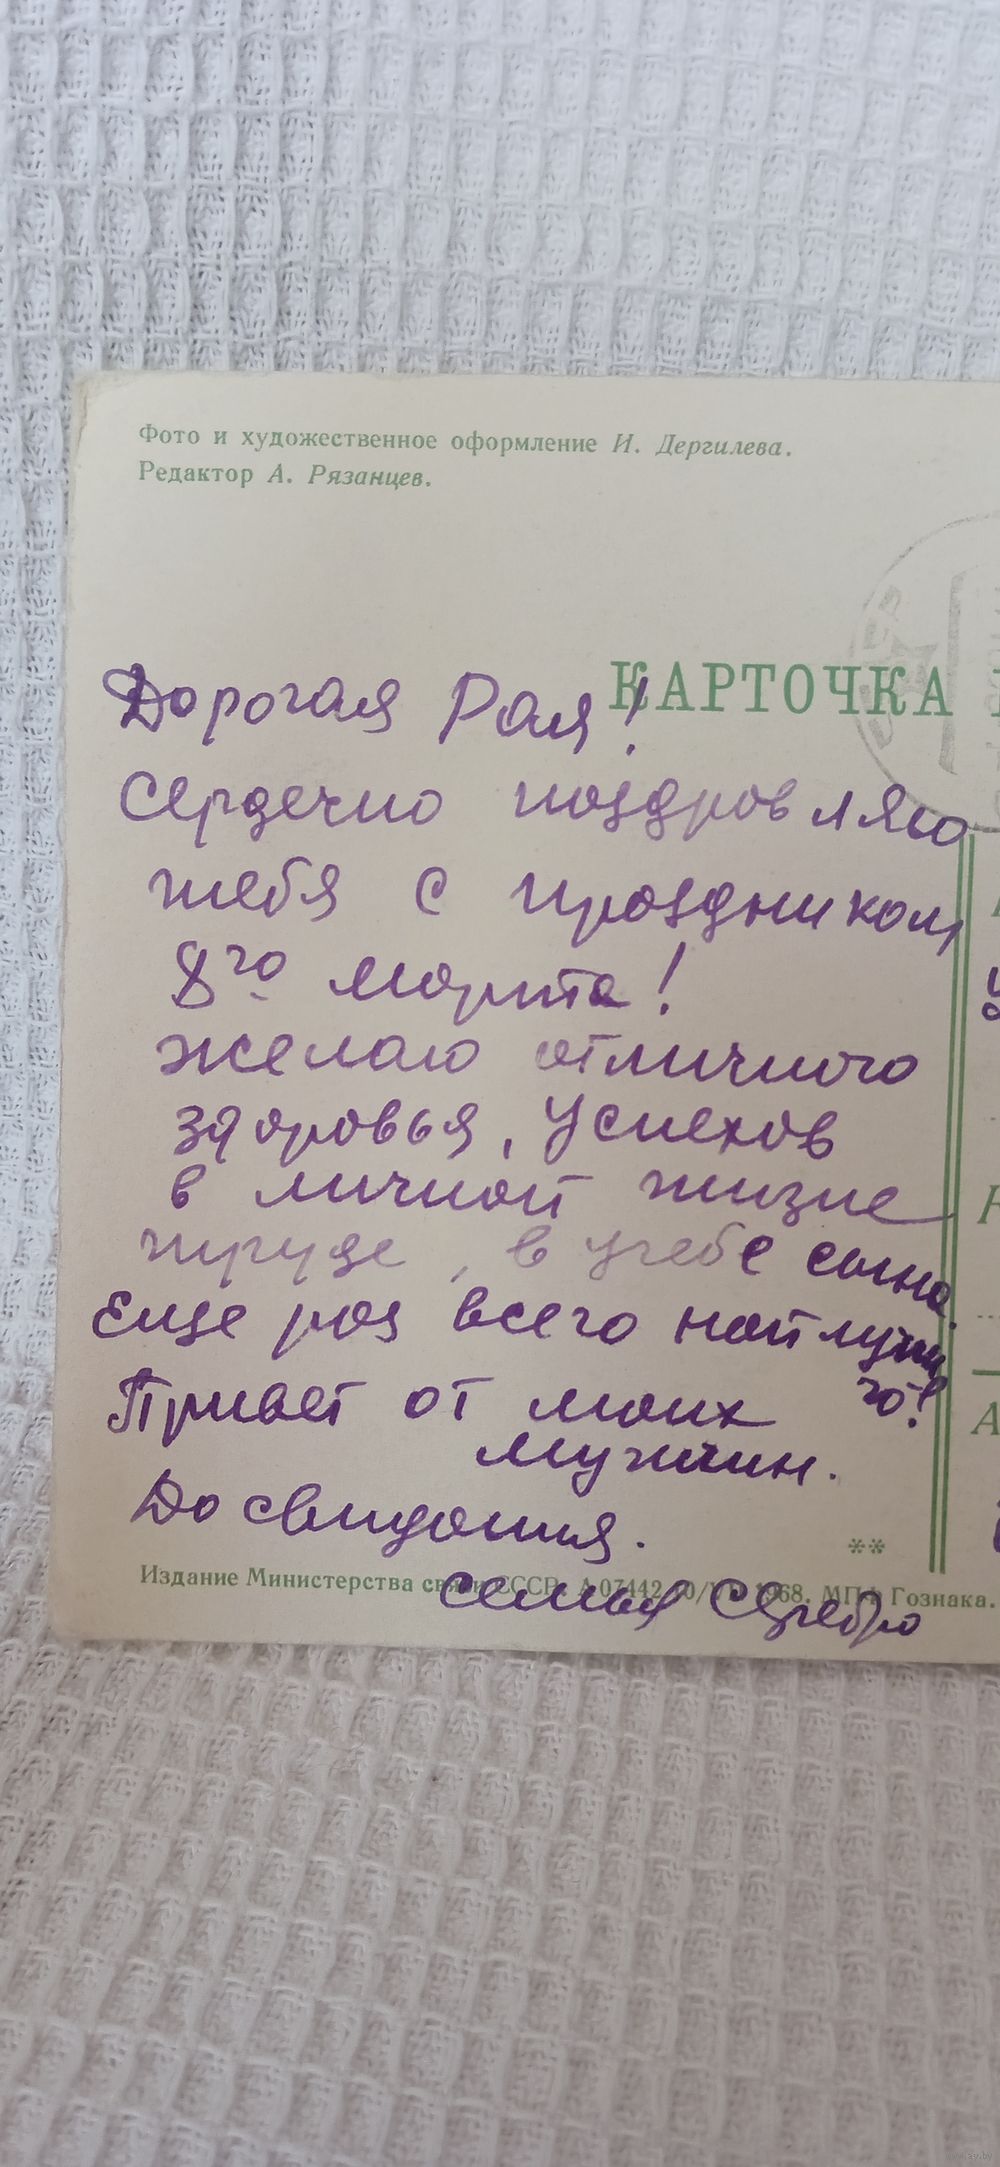 Фото и художественное оформление И. Дергилева.
Редактор А. Рязанцев.
КАРТОЧКА
Дорогая Рая!
Сердечно поздравляю
тебя с праздником
8го марта!
желаю отличного
здоровья, успехов
в личной жизне
труде, в учебе сына.
Еще раз всего найлучш
го!
Привет от моих
мужчин.
До свидания.
**
Издание Министерства связи СССР. А 07442 1968. МПФ Гознака.
семья Серебро